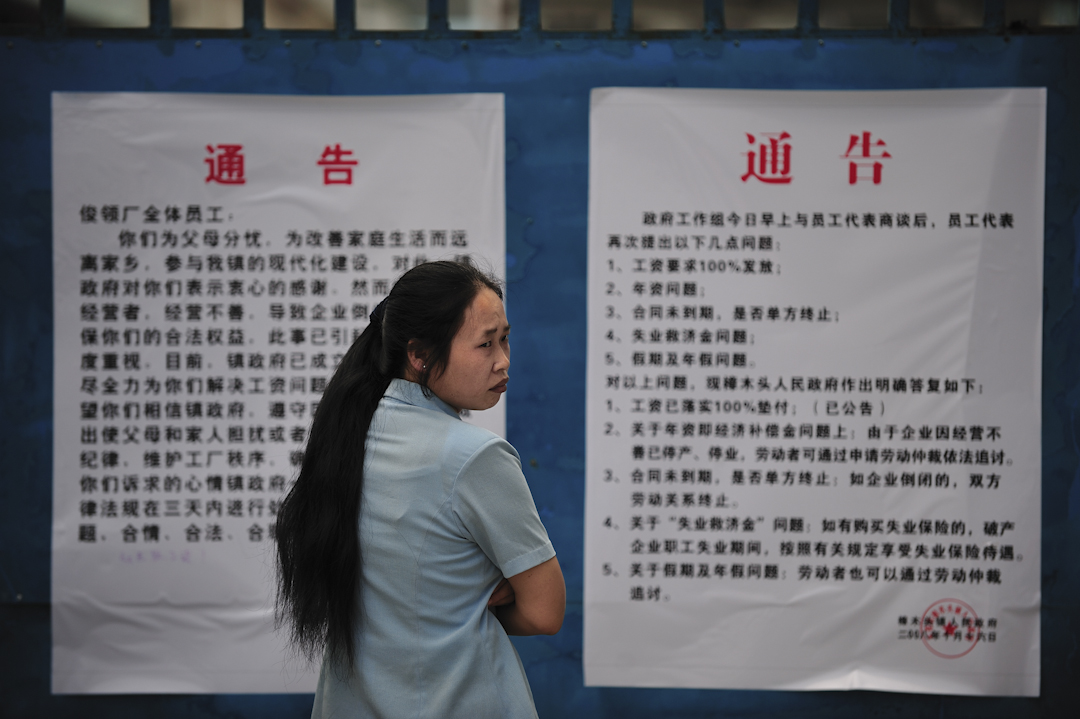 通 告
俊领厂全体员工：
你们为父母分忧，为改善家庭生活而远
离家乡，参与我镇的现代化建设，对此
政府对你们表示衷心的感谢。然而
经营者，经营不善，导致企业倒
保你们的合法权益，此事已引
度重视，目前，镇政府已成立
尽全力为你们解决工资问题
望你们相信镇政府，遵守
出使父母和家人担扰或者
纪律，维护工厂秩序，
你们诉求的心情镇政府
律法规在三天内进行处
题、合情、合法、合
通 告
政府工作组今日早上与员工代表商谈后，员工代表
再次提出以下几点问题：
1、工资要求100%发放；
2、年资问题；
3、合同未到期，是否单方终止；
4、失业救济金问题；
5、假期及年假问题。
对以上问题，现樟木头人民政府作出明确答复如下：
1、工资已落实100%垫付；（已公告）
2、关于年资即经济补偿金问题上：由于企业因经营不
善已停产、停业，劳动者可通过申请劳动仲裁依法追讨。
3、合同未到期，是否单方终止：如企业倒闭的，双方
劳动关系终止。
4、关于“失业救济金”问题：如有购买失业保险的，破产
企业职工失业期间，按照有关规定享受失业保险待遇。
5、关于假期及年假问题：劳动者也可以通过劳动仲裁
追讨。
樟木头镇人民政府